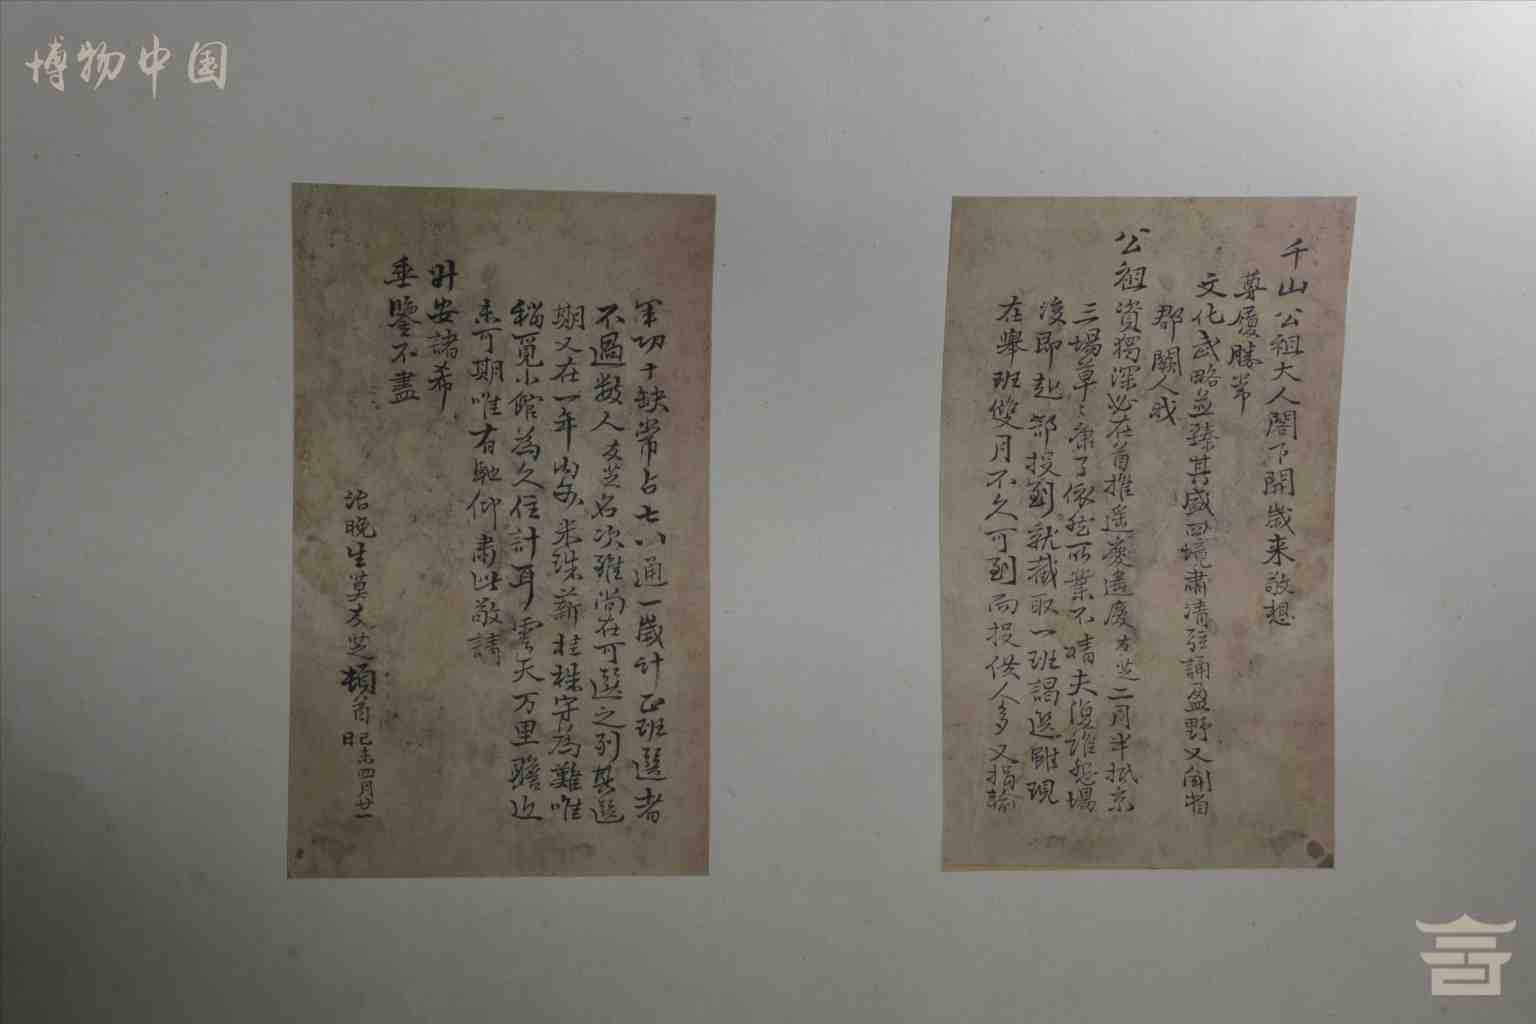 博物中国
千山公祖大人閣下開歲來敬想
尊履勝常
文化武略並臻其盛四境肅清弦誦盈野又聞省
郡闕人或
公祖資獨深必在首推遥慶遥慶友芝二月半抵京
三場草〻完了依然所業不精夫復誰怨場
後即赴部投到就截取一班謁選雖現
在舉班雙月不久可到而投供人多又捐輸
軍功十缺常占七八通一歲計正班選者
不過數人友芝名次雖尚在可選之列其選
期又在一年內外米珠薪桂株守為難唯
稍覓小館為久住計耳雲天万里瞻近
未可期唯有馳仰肅此敬請
升安諸希
垂鑒不盡
治晚生莫友芝頓首 己未四月廿一
日